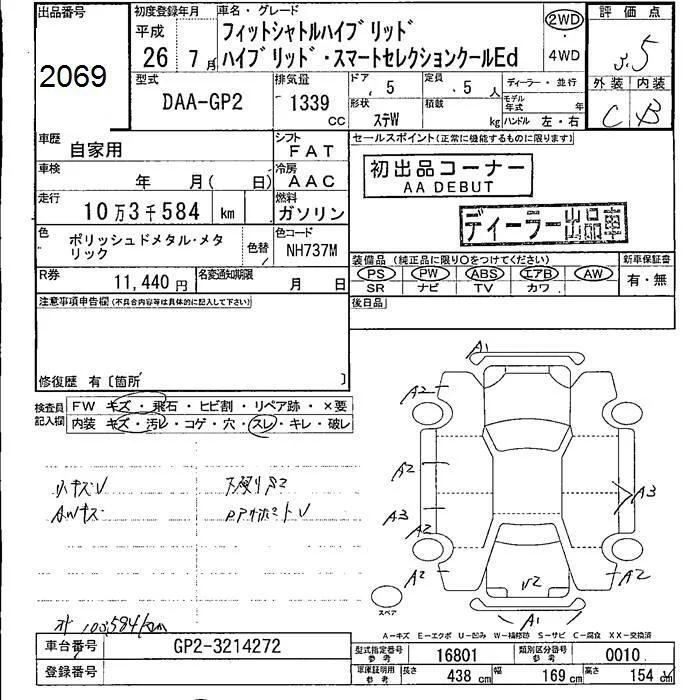 出品番号 初度登録年月 車名・グレード 評価点
2069 平成 26年 7月 フィットシャトルハイブリッド 2WD
ハイブリッド・スマートセレクションクールEd 4WD 3.5
型式 排気量 ドア 5 定員 5人 ディーラー・並行 外装 内装
DAA-GP2 1339 CC 形状 ステW 積載 kg モデル年式 年 C B
ハンドル 左・右
車歴 自家用 シフト FAT セールスポイント(正常に機能するものに限ります)
車検 年 月( 日) 冷房 AAC 初出品コーナー
AA DEBUT
走行 10万3千584 km 燃料 ガソリン ディーラー出品車
色 ポリッシュドメタル・メタリック 色替 色コード NH737M
装備品(純正品に限り○をつけてください) 新車保証書
PS PW ABS エアB AW 有・無
SR ナビ TV カワ
R券 11,440円 名変通知期限 月 日
注意事項申告欄(不具合内容等は具体的に記入して下さい) 後日品
修復歴 有〔箇所 〕
検査員記入欄 FW キズ・飛石・ヒビ割・リペア跡・×要
内装 キズ・汚レ・コゲ・穴・スレ・キレ・破レ
A1
A2
A2
A3
A3
A2
A2 A2
V2
スペア
A1
リキズV
AWキズ
103,584km
A−キズ E−エクボ U−凹み W−補修跡 S−サビ C−腐食 XX−交換済
車台番号 GP2-3214272 型式指定番号 参考 16801 類別区分番号 参考 0010
登録番号 車庫証明用 参考 長さ 438 cm 幅 169 cm 高さ 154 cm